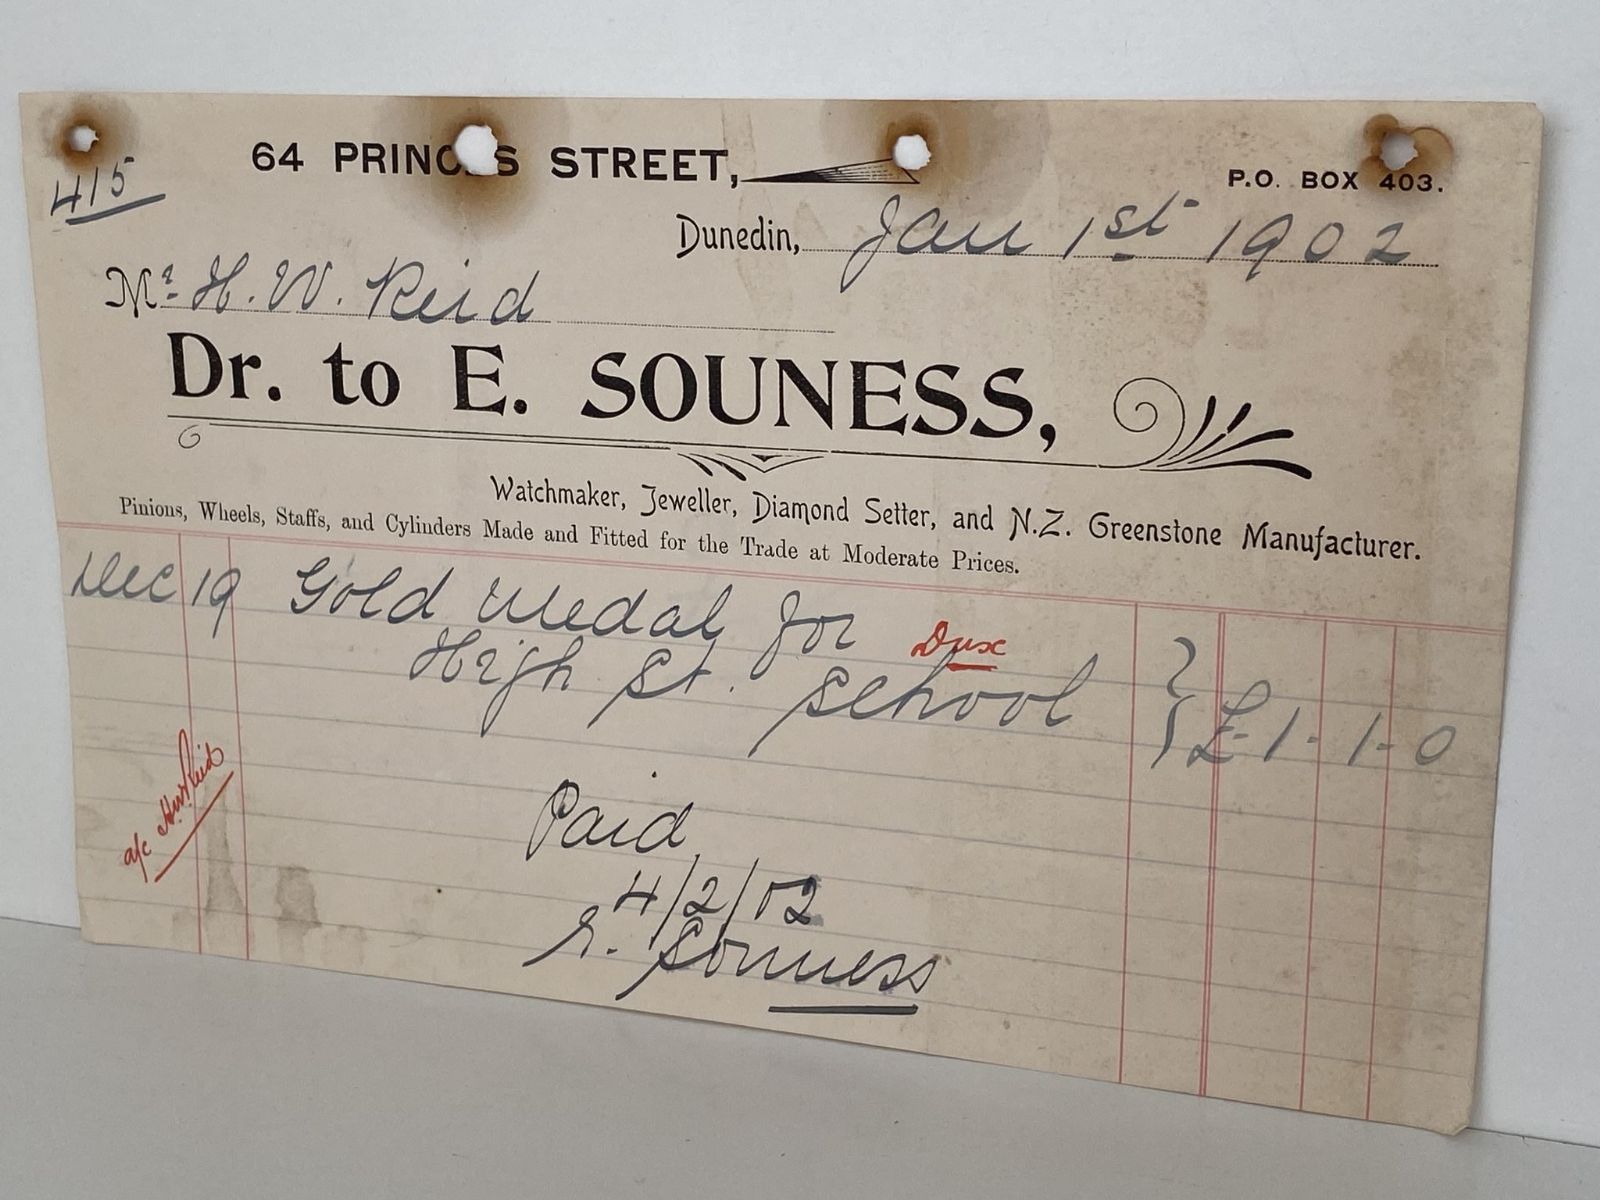 64 PRINCES STREET,
P.O. BOX 403.
415
Dunedin, Jan 1st 1902
Mr. H. W. Reid
Dr. to E. SOUNESS,
Watchmaker, Jeweller, Diamond Setter, and N.Z. Greenstone Manufacturer.
Pinions, Wheels, Staffs, and Cylinders Made and Fitted for the Trade at Moderate Prices.
Dec 19 Gold Medal for Dux
High St. School } £-1-1-0
a/c HWReid
Paid
4/2/02
E. Souness